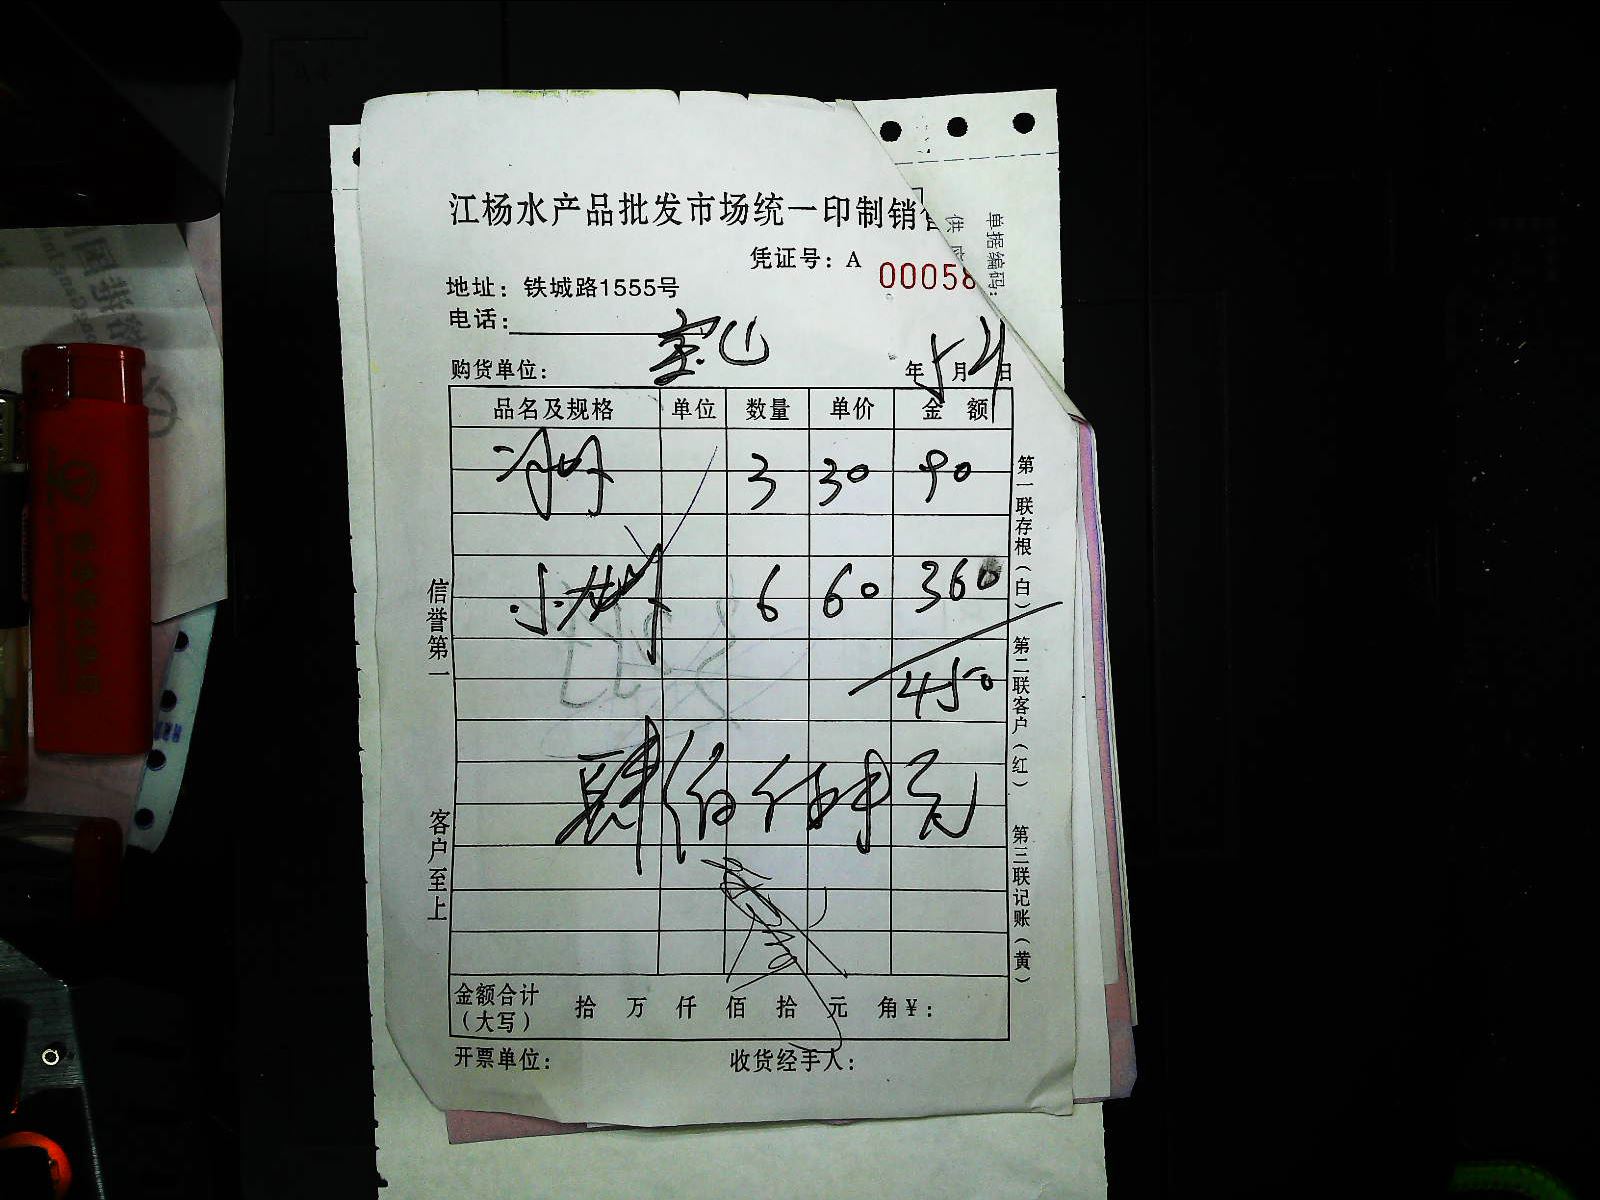 江杨水产品批发市场统一印制销
凭证号：A 00058
地址：铁城路1555号
电话：
购货单位：宝山 年5月4日
品名及规格 单位 数量 单价 金额
3 30 90
小龙虾 6 60 360
450
肆佰伍拾元
金额合计（大写） 拾 万 仟 佰 拾 元 角￥：
开票单位： 收货经手人：
信誉第一
客户至上
第一联存根（白）
第二联客户（红）
第三联记账（黄）
单据编码：
供